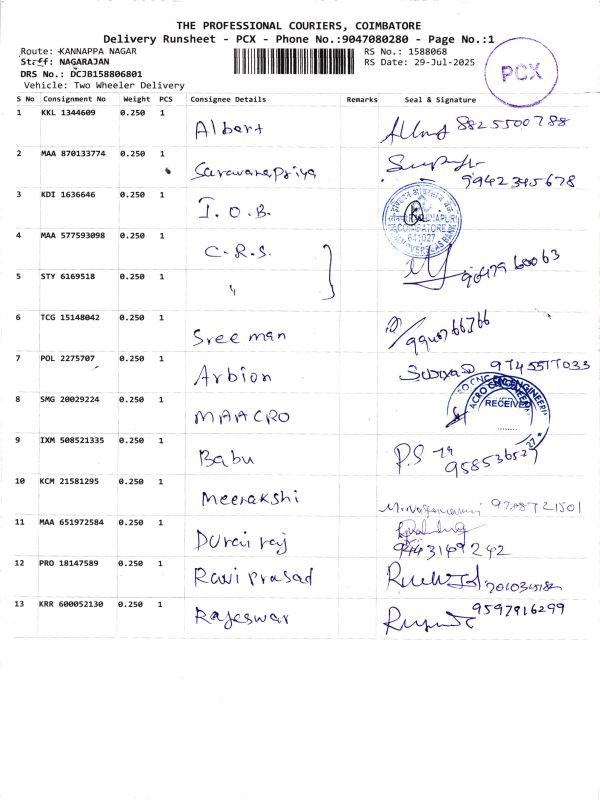 THE PROFESSIONAL COURIERS, COIMBATORE
Delivery Runsheet - PCX - Phone No.:9047080280 - Page No.:1
Route: KANNAPPA NAGAR RS No.: 1588068
Staff: NAGARAJAN RS Date: 29-Jul-2025
DRS No.: DCJB158806801
Vehicle: Two Wheeler Delivery
PCX
S No Consignment No Weight PCS Consignee Details Remarks Seal & Signature
1 KKL 1344609 0.250 1 Albert 8825500788
2 MAA 870133774 0.250 1 Saravanapriya 9942345678
3 KDI 1636646 0.250 1 I.O.B.
COIMBATORE
641027
4 MAA 577593098 0.250 1 C.R.S.
5 STY 6169518 0.250 1 "
6 TCG 15148042 0.250 1 Sree man
7 POL 2275707 0.250 1 Arbion 9745577033
8 SMG 20029224 0.250 1 MAACRO RECEIVED
9 IXM 508521335 0.250 1 Babu P.S
10 KCM 21581295 0.250 1 Meenakshi
11 MAA 651972584 0.250 1 Durai raj 9443169242
12 PRO 18147589 0.250 1 Raviprasad
13 KRR 600052130 0.250 1 Rajeswar 9597916299